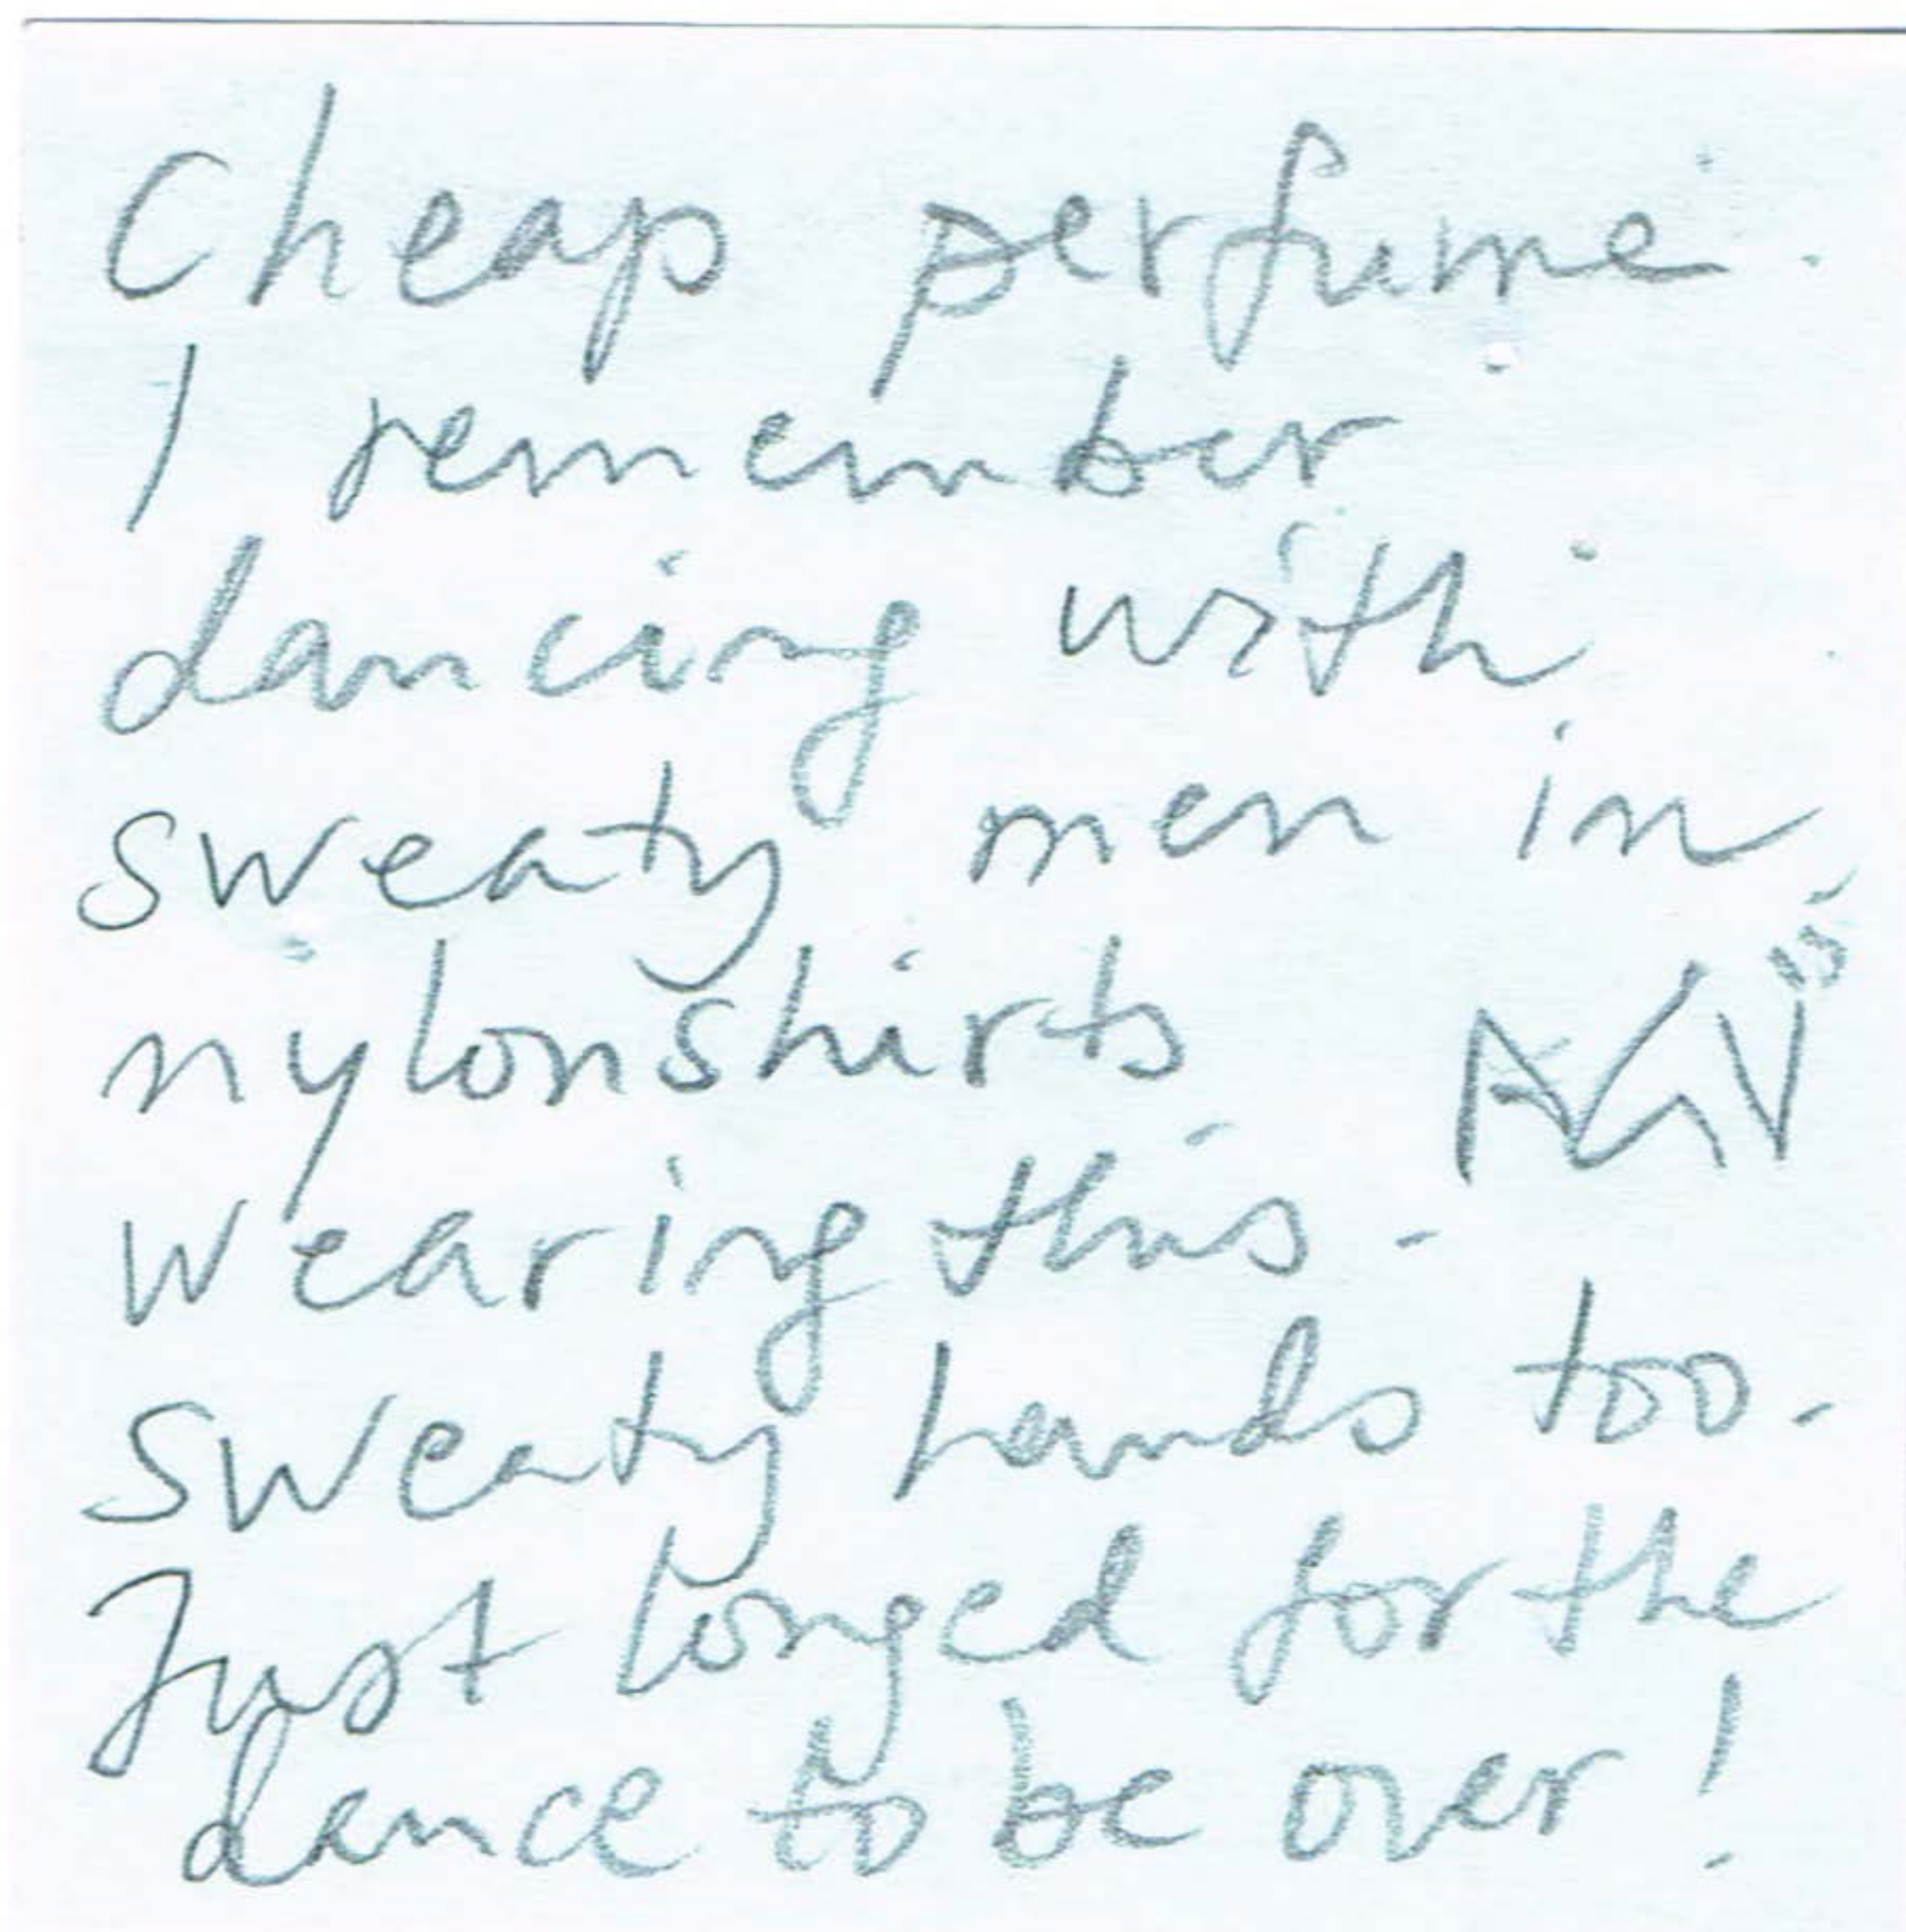 Cheap perfume.
I remember
dancing with
sweaty men in
nylonshirts
wearing this.
Sweaty hands too.
Just longed for the
dance to be over!